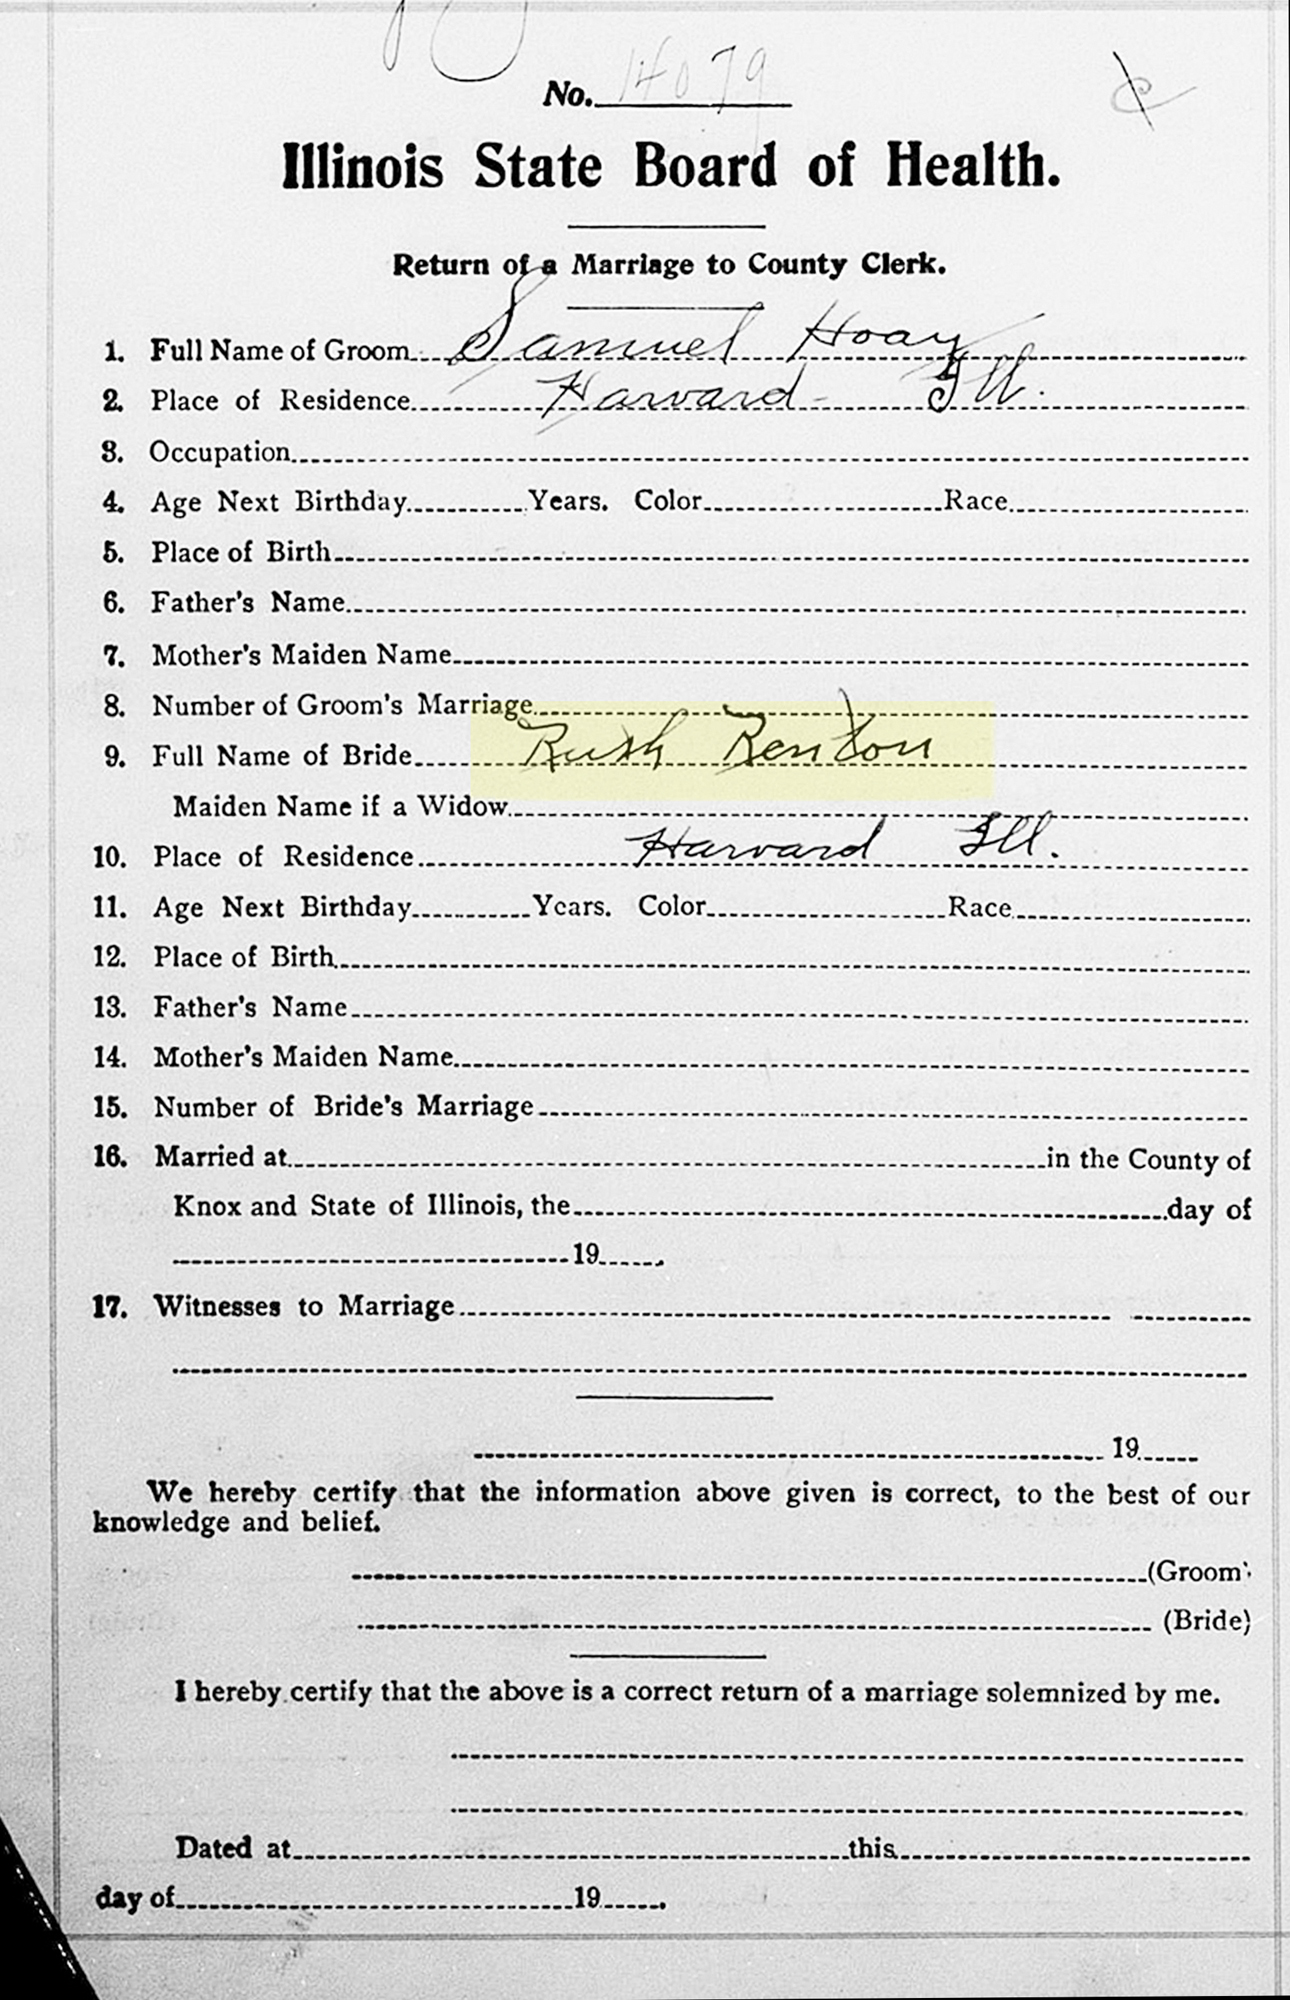 No. 14079
Illinois State Board of Health.
Return of a Marriage to County Clerk.
1. Full Name of Groom Samuel Hoay
2. Place of Residence Harvard - Ill.
3. Occupation
4. Age Next Birthday Years. Color Race
5. Place of Birth
6. Father's Name
7. Mother's Maiden Name
8. Number of Groom's Marriage
9. Full Name of Bride Ruth Renton
Maiden Name if a Widow
10. Place of Residence Harvard Ill.
11. Age Next Birthday Years. Color Race
12. Place of Birth
13. Father's Name
14. Mother's Maiden Name
15. Number of Bride's Marriage
16. Married at in the County of
Knox and State of Illinois, the day of
19
17. Witnesses to Marriage
19
We hereby certify that the information above given is correct, to the best of our
knowledge and belief.
(Groom)
(Bride)
I hereby certify that the above is a correct return of a marriage solemnized by me.
Dated at this
day of 19